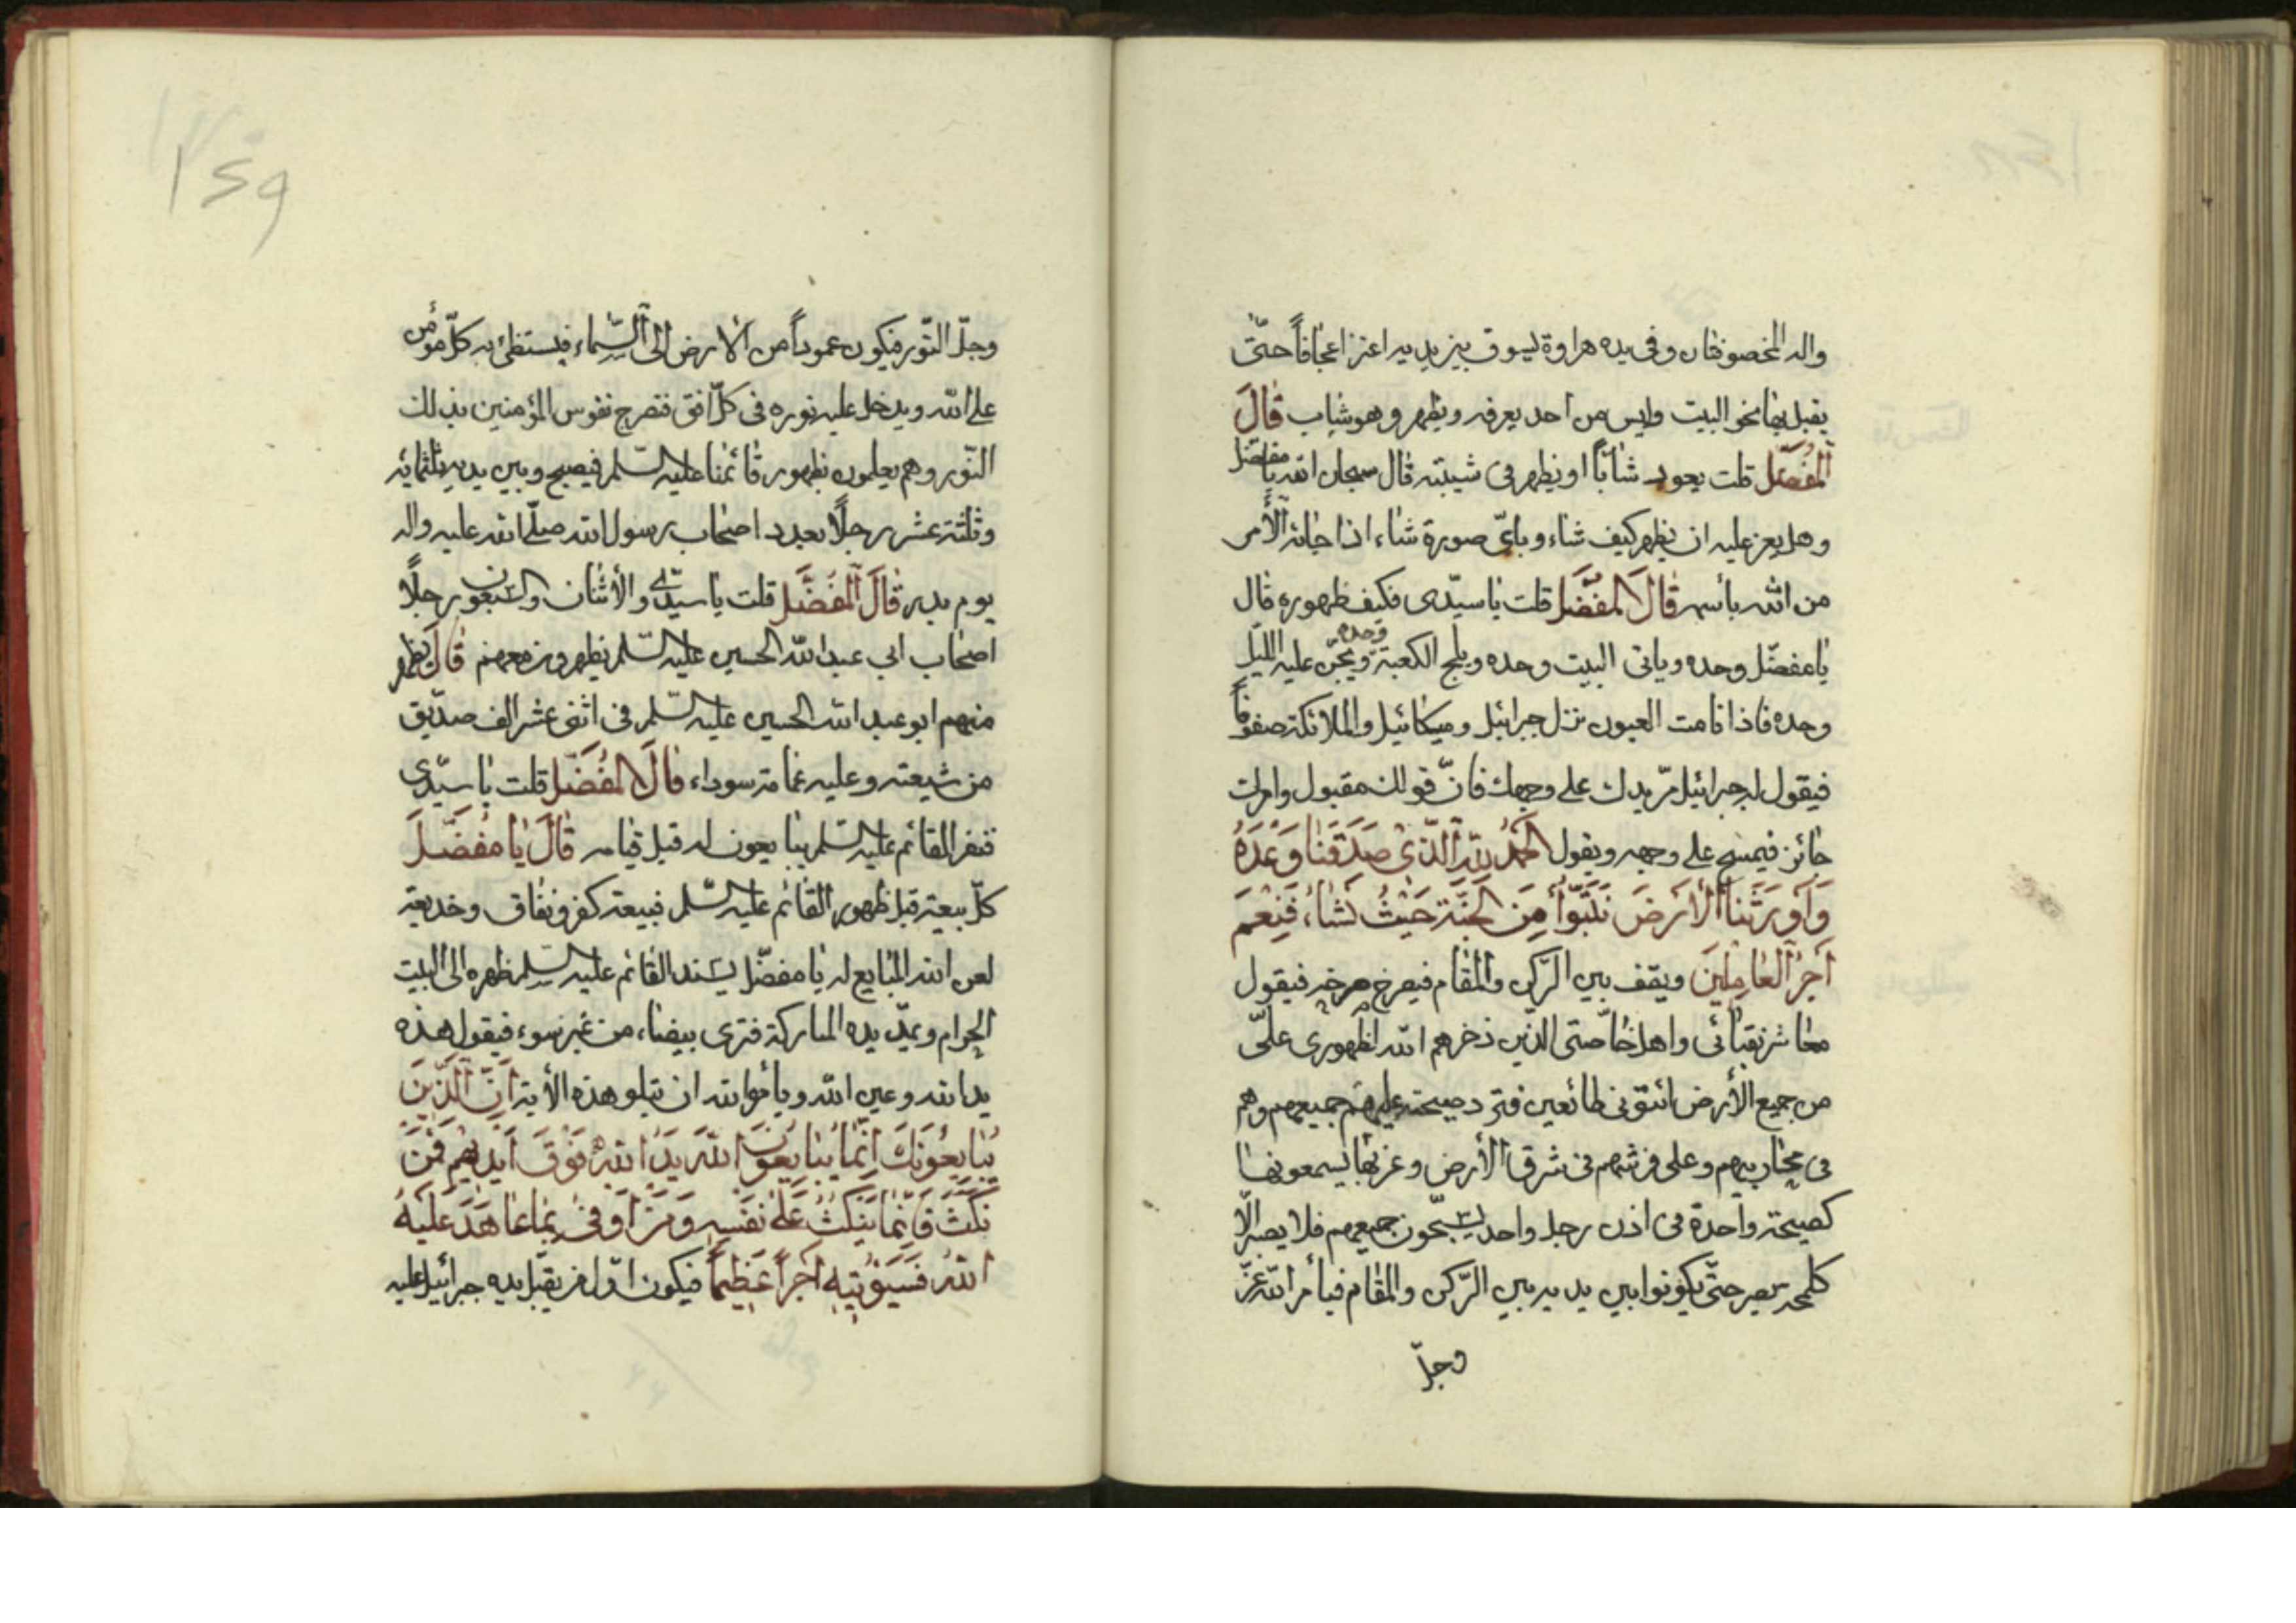 واله المخصوفتان وفى يده هراوة يسوق بين يديه اعنزا عجافاً حتّى
يقبل بها نحو البيت وليس من احد يعرفه ويظهر وهو شاب قال
المفضّل قلت يعود شاباً او يظهر فى شيبته قال سبحان الله يا مفضل
وهل يعز عليه ان يظهر كيف شاء وباىّ صورة شاء اذا جائه الأمر
من الله باسمه قَالَ المفضّل قلت يا سيّدى فكيف ظهوره قال
يا مفضّل وحده وياتى البيت وحده ويلج الكعبة وحده ويجنّ عليه الليل
وحده فاذا نامت العيون نزل جبرائيل وميكائيل والملائكة صفوفاً
فيقول له جبرائيل مرّ يدك على وجهك فانّ قولك مقبول وامرك
جائز فيمسح على وجهه ويقول الحَمدُ للهِ الَّذى صَدَقَنا وَعْدَهُ
وَاَورَثَنا الْاَرضَ نَتَبَوَّأُ مِنَ الجَنَّةِ حَيْثُ نَشاءُ فَنِعْمَ
اَجرُ العامِلِينَ ويقف بين الرّكن والمقام فيصرخ صرخة فيقول
معاشر نقبائى واهل خاصّتى الذين ذخرهم الله لظهورى على
من جميع الأرض ائتونى طائعين فترد صيحته عليهم جميعهم وهم
فى محاريبهم وعلى فرشهم فى شرق الأرض وغربها يسمعونها
كصيحة واحدة فى اذن رجل واحد جميعهم فلا يصر الّا
كلمحة بصر حتّى يكونوا بين يديه بين الرّكن والمقام فيأمر الله عزّ
وجلّ
١٤٩
وجلّ النّور فيكون عموداً من الارض الى السّماء فيستضئ به كلّ مؤمن
على الله ويدخل عليه نوره فى كلّ افق فتفرح نفوس المؤمنين بذلك
النّور وهم يعلمون بظهور قائمنا عليه السّلم فيصبح وبين يديه ثلثمائه
وثلثة عشر رجلًا بعدد اصحاب رسول الله صلّى الله عليه واله
يوم بدر قَالَ المفَضَّل قلت يا سيّدى والأثنان والسّبعون رجلًا
اصحاب ابى عبد الله الحسين عليه السّلم يظهرون معهم قال يظهر
منهم ابو عبد الله الحسين عليه السّلم فى اثنى عشر الف صدّيق
من شيعته وعليه عمامة سوداء قالَ المفُضَّل قلت يا سيّدى
فنفر القائم عليه السّلم يبايعون له قبل قيامه قالَ يا مُفَضَّل
كلّ بيعة قبل ظهور القائم عليه السّلم فبيعة كفر ونفاق وخديعة
لعن الله المبايع له يا مفضّل يسند القائم عليه السّلم ظهره الى البيت
الحرام ويمدّ يده المباركة فترى بيضاء من غير سوء فيقول هذه
يد الله وعين الله ويامر الله ان يتلو هذه الأية اِنَّ الَّذِينَ
يُبايعُونَكَ اِنَّما يُبايعُونَ اللّهَ يَدُ اللهِ فَوْقَ اَيْديهِم فَمَنْ
نَكَثَ فَاِنَّما يَنكُثُ عَلى نَفسِه وَمَنْ اَوفى بِما عاهَدَ عَلَيهُ
اللهَ فَسَيَؤُتيهِ اَجراً عَظيماً فيكون اوّل من يقبّل يده جبرائيل عليه